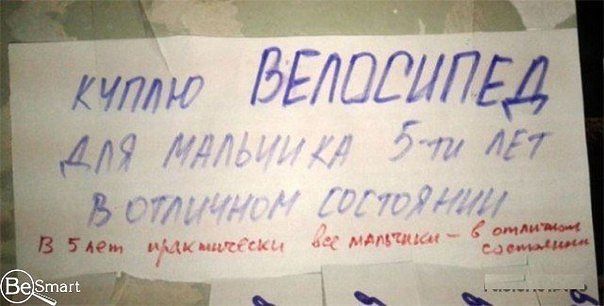 КУПЛЮ ВЕЛОСИПЕД
ДЛЯ МАЛЬЧИКА 5-ти ЛЕТ
В ОТЛИЧНОМ СОСТОЯНИИ
В 5 лет практически все мальчики – в отличном
состоянии
BeSmart